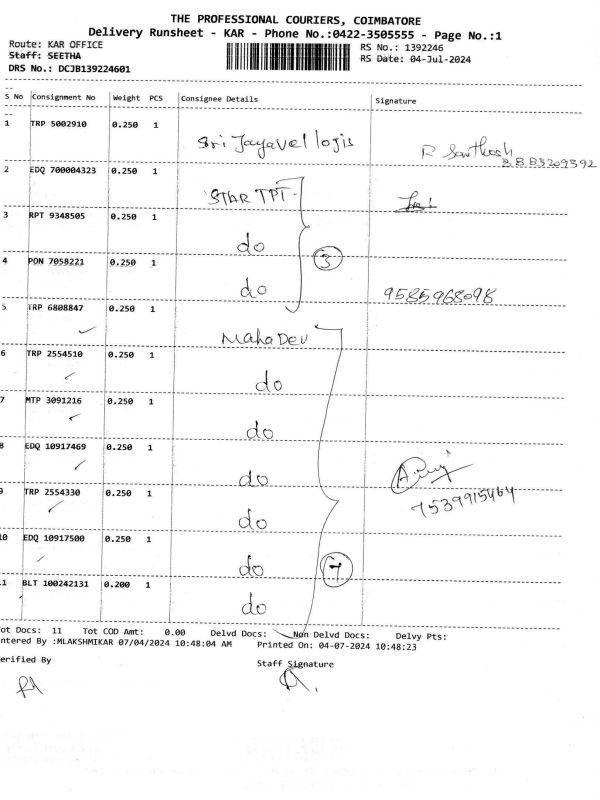 THE PROFESSIONAL COURIERS, COIMBATORE
Delivery Runsheet - KAR - Phone No.:0422-3505555 - Page No.:1
Route: KAR OFFICE
RS No.: 1392246
Staff: SEETHA
RS Date: 04-Jul-2024
DRS No.: DCJB139224601
S No Consignment No Weight PCS Consignee Details Signature
1 TRP 5002910 0.250 1 Sri Jayavel logis R Santhosh
8883209392
2 EDQ 700004323 0.250 1 STAR TPT.
3 RPT 9348505 0.250 1 do
3
4 PON 7058221 0.250 1 do 9585968098
5 TRP 6808847 0.250 1 MahaDev
6 TRP 2554510 0.250 1 do
7 MTP 3091216 0.250 1 do
8 EDQ 10917469 0.250 1 do
9 TRP 2554330 0.250 1 do 7539915464
10 EDQ 10917500 0.250 1 do
7
11 BLT 100242131 0.200 1 do
Tot Docs: 11 Tot COD Amt: 0.00 Delvd Docs: Non Delvd Docs: Delvy Pts:
ntered By :MLAKSHMIKAR 07/04/2024 10:48:04 AM Printed On: 04-07-2024 10:48:23
erified By
Staff Signature